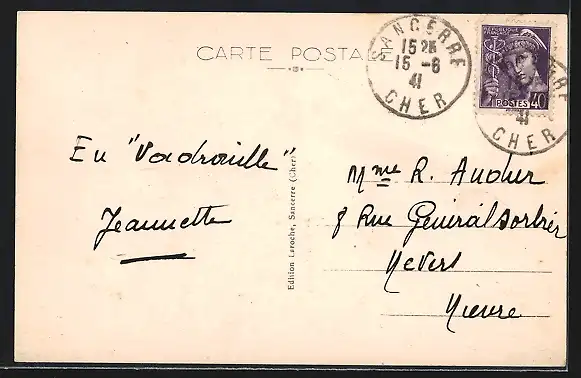 CARTE POSTALE
SANCERRE
15 25
15 -6
41
CHER
REPUBLIQUE FRANÇAISE
POSTES 40
41
CHER
En "Vadrouille"
Jeannette
Edition Laroche, Sancerre (Cher)
Mme R. Audur
8 Rue Général Sorbier
Nevers
Nièvre